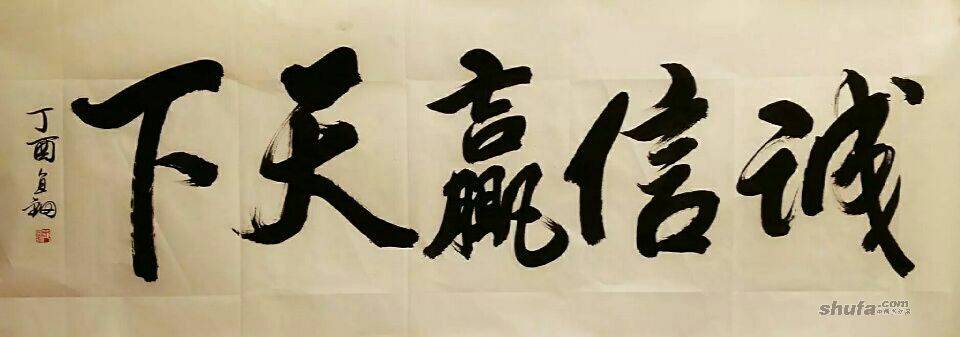 诚信赢天下
丁酉
shufa.com